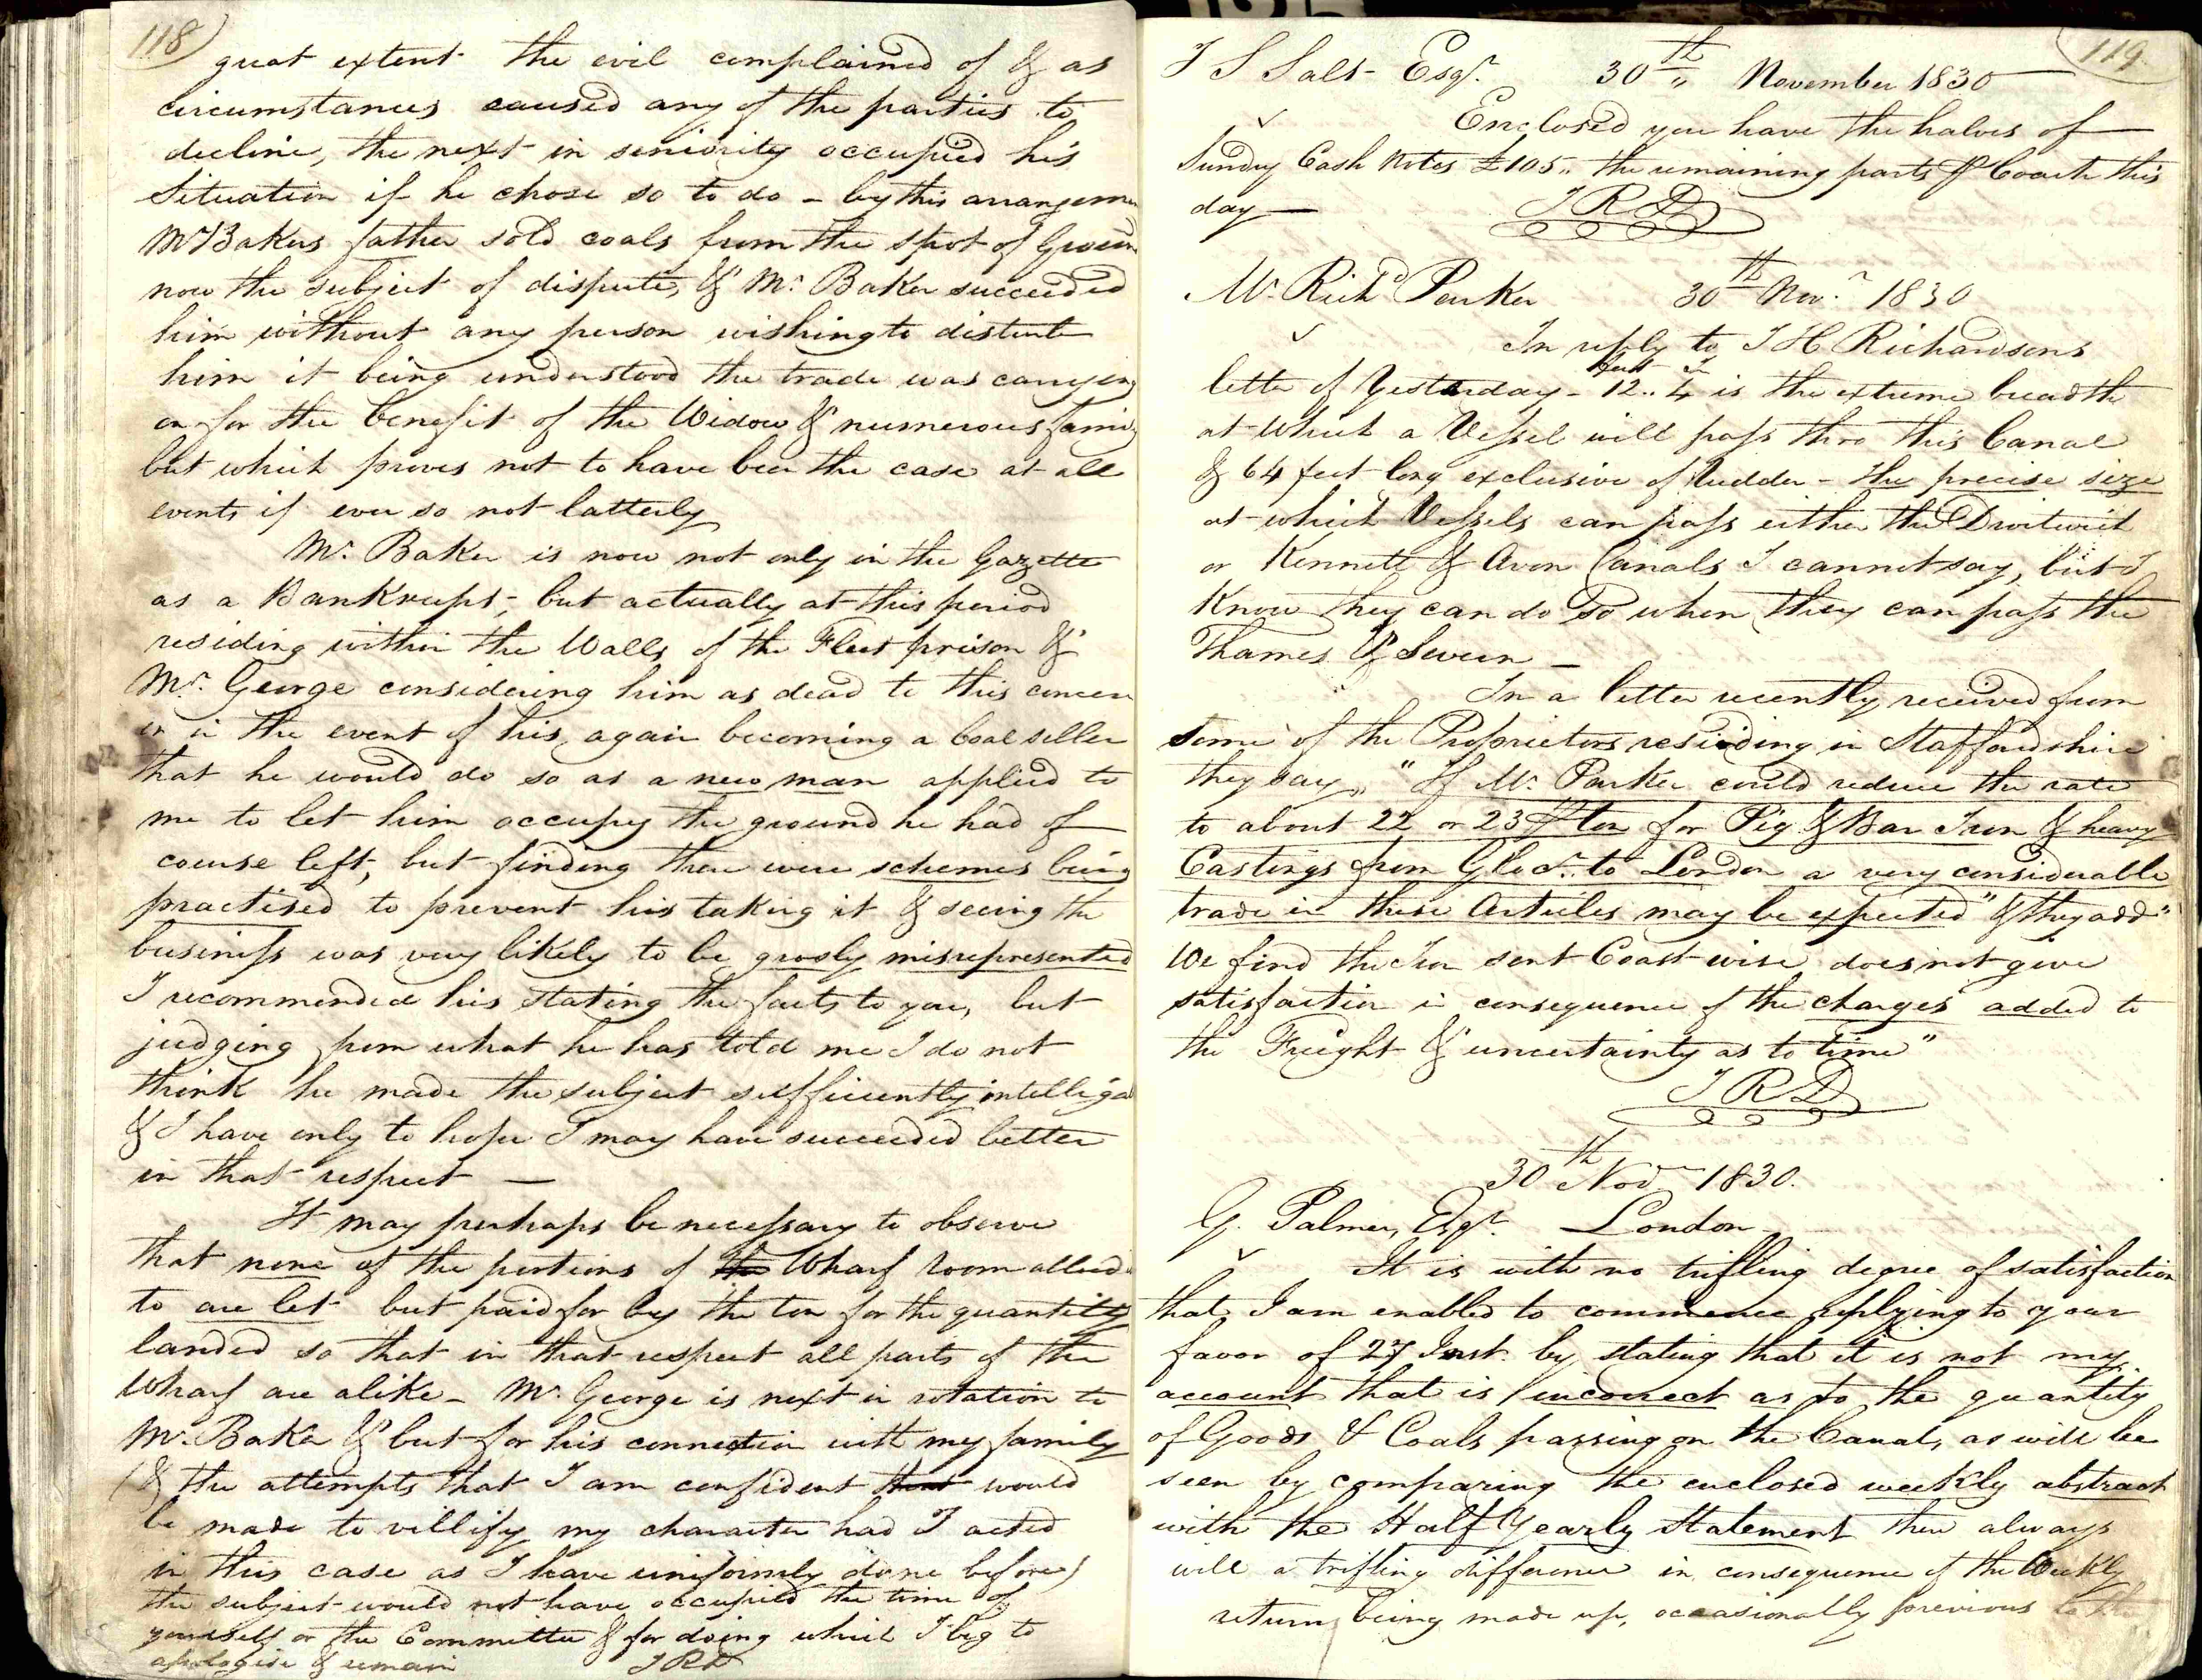 118)
great extent the evil complained of & as
circumstances caused any of the parties to
decline, the next in seniority occupied his
Situation if he chose so to do - by this arrangemen
Mr Bakers father sold coals from the spot of Groun
now the subject of dispute, & Mr. Baker succeeded
him without any person wishing to disturb
him it being understood the trade was carrying
on for the benefit of the Widow & numerous family
but which proves not to have been the case at all
events if ever so not latterly
Mr. Baker is now not only in the Gazette
as a Bankrupt, but actually at this period
residing within the Walls of the Fleet prison &
Mr. George considering him as dead to this concern
or in the event of his again becoming a Coal seller
that he would do so as a new man applied to
me to let him occupy the ground he had of
course left, but finding there were schemes being
practised to prevent his taking it & seeing the
business was very likely to be grosly misrepresented
I recommended his stating the facts to you, but
judging from what he has told me I do not
think he made the subject sufficiently intelliga
& I have only to hope I may have succeeded better
in that respect —
It may perhaps be necessary to observe
that none of the portions of the Wharf room allud
to are let but paid for by the ton for the quantity
landed so that in that respect all parts of the
Wharf are alike - Mr. George is next in rotation to
Mr. Baker & but for his connection with my family
(& the attempts that I am confident that would
be made to villify my character had I acted
in this case as I have uniformly done before)
the subject would not have occupied the time of
yourself or the Committee & for doing which I beg to
apologise & remain I R D
119
T S Salt Esqr. 30th November 1830
Enclosed you have the halves of
Sundry Cash Notes £105,, the remaining parts P Coach this
day —
I R D
Mr. Richd Parker 30th Novr 1830
In reply to T H Richardsons
letter of Yesterday - 12 feet.. 4 in is the extreme breadth
at which a Vessel will pass thro this Canal
& 64 feet long exclusive of Rudder - the precise size
at which Vessels can pass either the Droitwich
or Kennett & Avon Canals I cannot say, but I
Know they can do so when they can pass the
Thames & Severn —
In a letter recently received from
some of the Proprietors residing in Staffordshire
they say,, "If Mr. Parker could reduce the rate
to about 22 or 23/ P ton for Pig & Bar Iron & heavy
Castings from Glocr. to London a very considerable
trade in these Articles may be expected" & they add "
We find the Iron sent Coast wise does not give
satisfaction in consequence of the charges added to
the Freight & uncertainty as to time"
I R D
30th Novr 1830.
G. Palmer, Esqr. London
It is with no trifling degree of satisfaction
that I am enabled to commence replying to your
favor of 27 Inst. by stating that it is not my
account that is incorrect as to the quantity
of Goods & Coals passing on the Canal, as will be
seen by comparing the enclosed weekly abstract
with the Half Yearly Statement there always
will a trifling difference in consequence of the Weekly
return being made up, occasionally previous to the